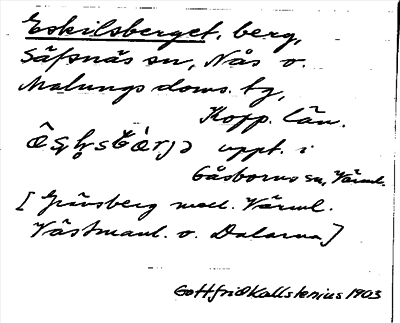 Eskilsberget, berg,
Säfsnäs sn, Nås o.
Malungs doms. tg,
Kopp. län.
uppt. i
Gåsborns sn, Värml.
[Gränsberg med. Värml.
Västmanl. o. Dalarna]
Gottfrid Kallstenius 1903